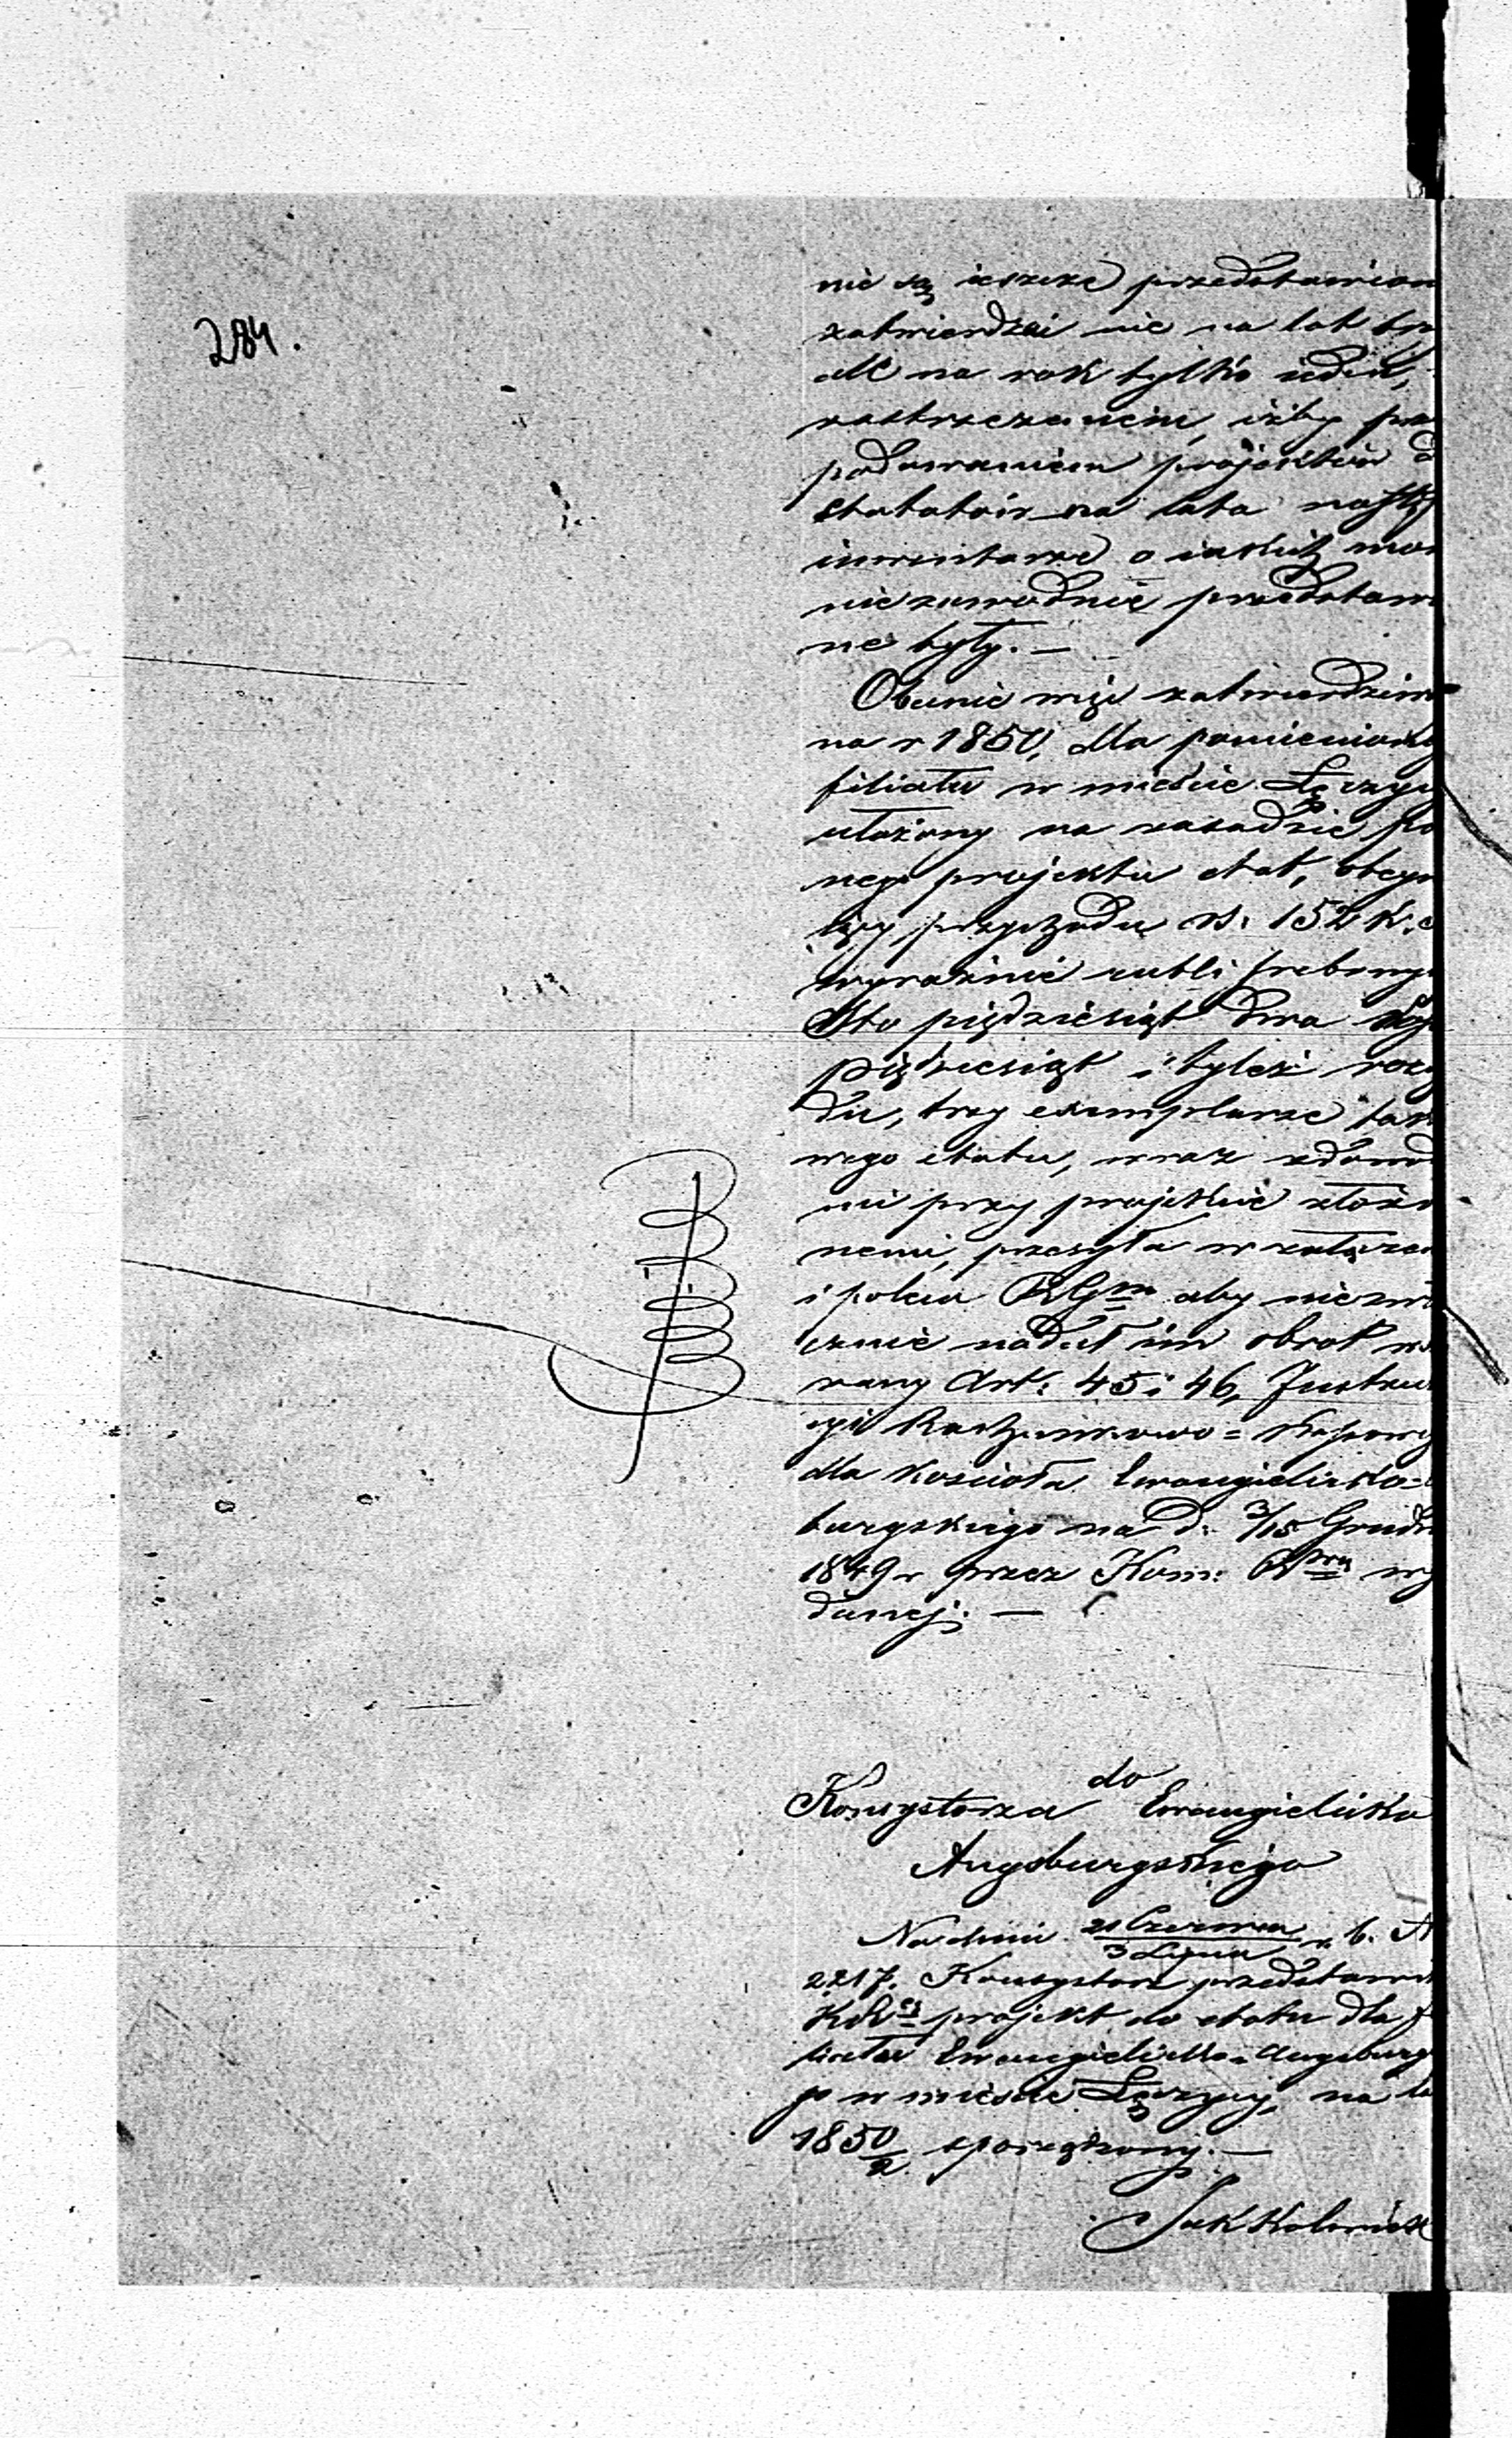 284.
nie są ieszcze przedstawion
zatwierdzai nie na lat trz
ale na rok tylko ieden,
zastrzezeniem, iżby prz
podawaniem projektów d
etatatów na lata nastę
inwentarze o iakich mow
niezawodnie przedstaw
ne były. —
Obecnie więc zatwierdziw
na r 1850, dla pomieniony
filiału w mieście Łęczyc
ułożony na zasadzie po
nego projektu etat, obeym
iący przychodu rs: 152 k.
wyraźnie rubli srebrnych
Sto pięćdziesiąt dwa kop
pięćdziesiąt i tyleż roz
du, trzy exemplarze tak
wego etatu, wraz zdowod
mi przy projekcie złożo
nemi, przesyła w załączen
i poleca aby niezwł
cznie nadał im obrot ws
zany Art: 45 i 46, Instruk
cyi Rachunkowo = Kassowey
dla Kościoła Ewangielicko =
burgskiego na d: 3/15 Grudn
1849 r przez Kom: wy
danej. —
do
Konsystorza Ewangielicko
Augsburgskiego
Na dniu 21 Czerwca / 3 Lipca r. b. N
2217. Konsystorz przedstawił
projekt do etatu dla fi
liału Ewangielicko = Augsburgs
go w mieście Łęczycy, na la
1850/2 sporządzony. —